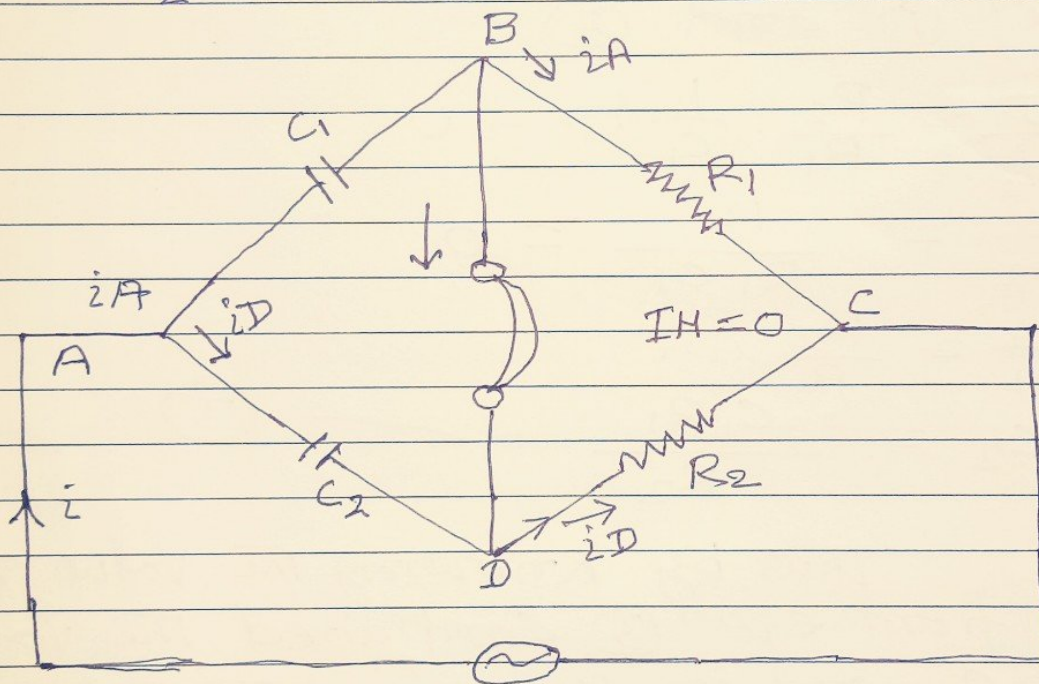 B
iA
C1
R1
iA
iD
IH = 0
C
A
C2
R2
i
iD
D